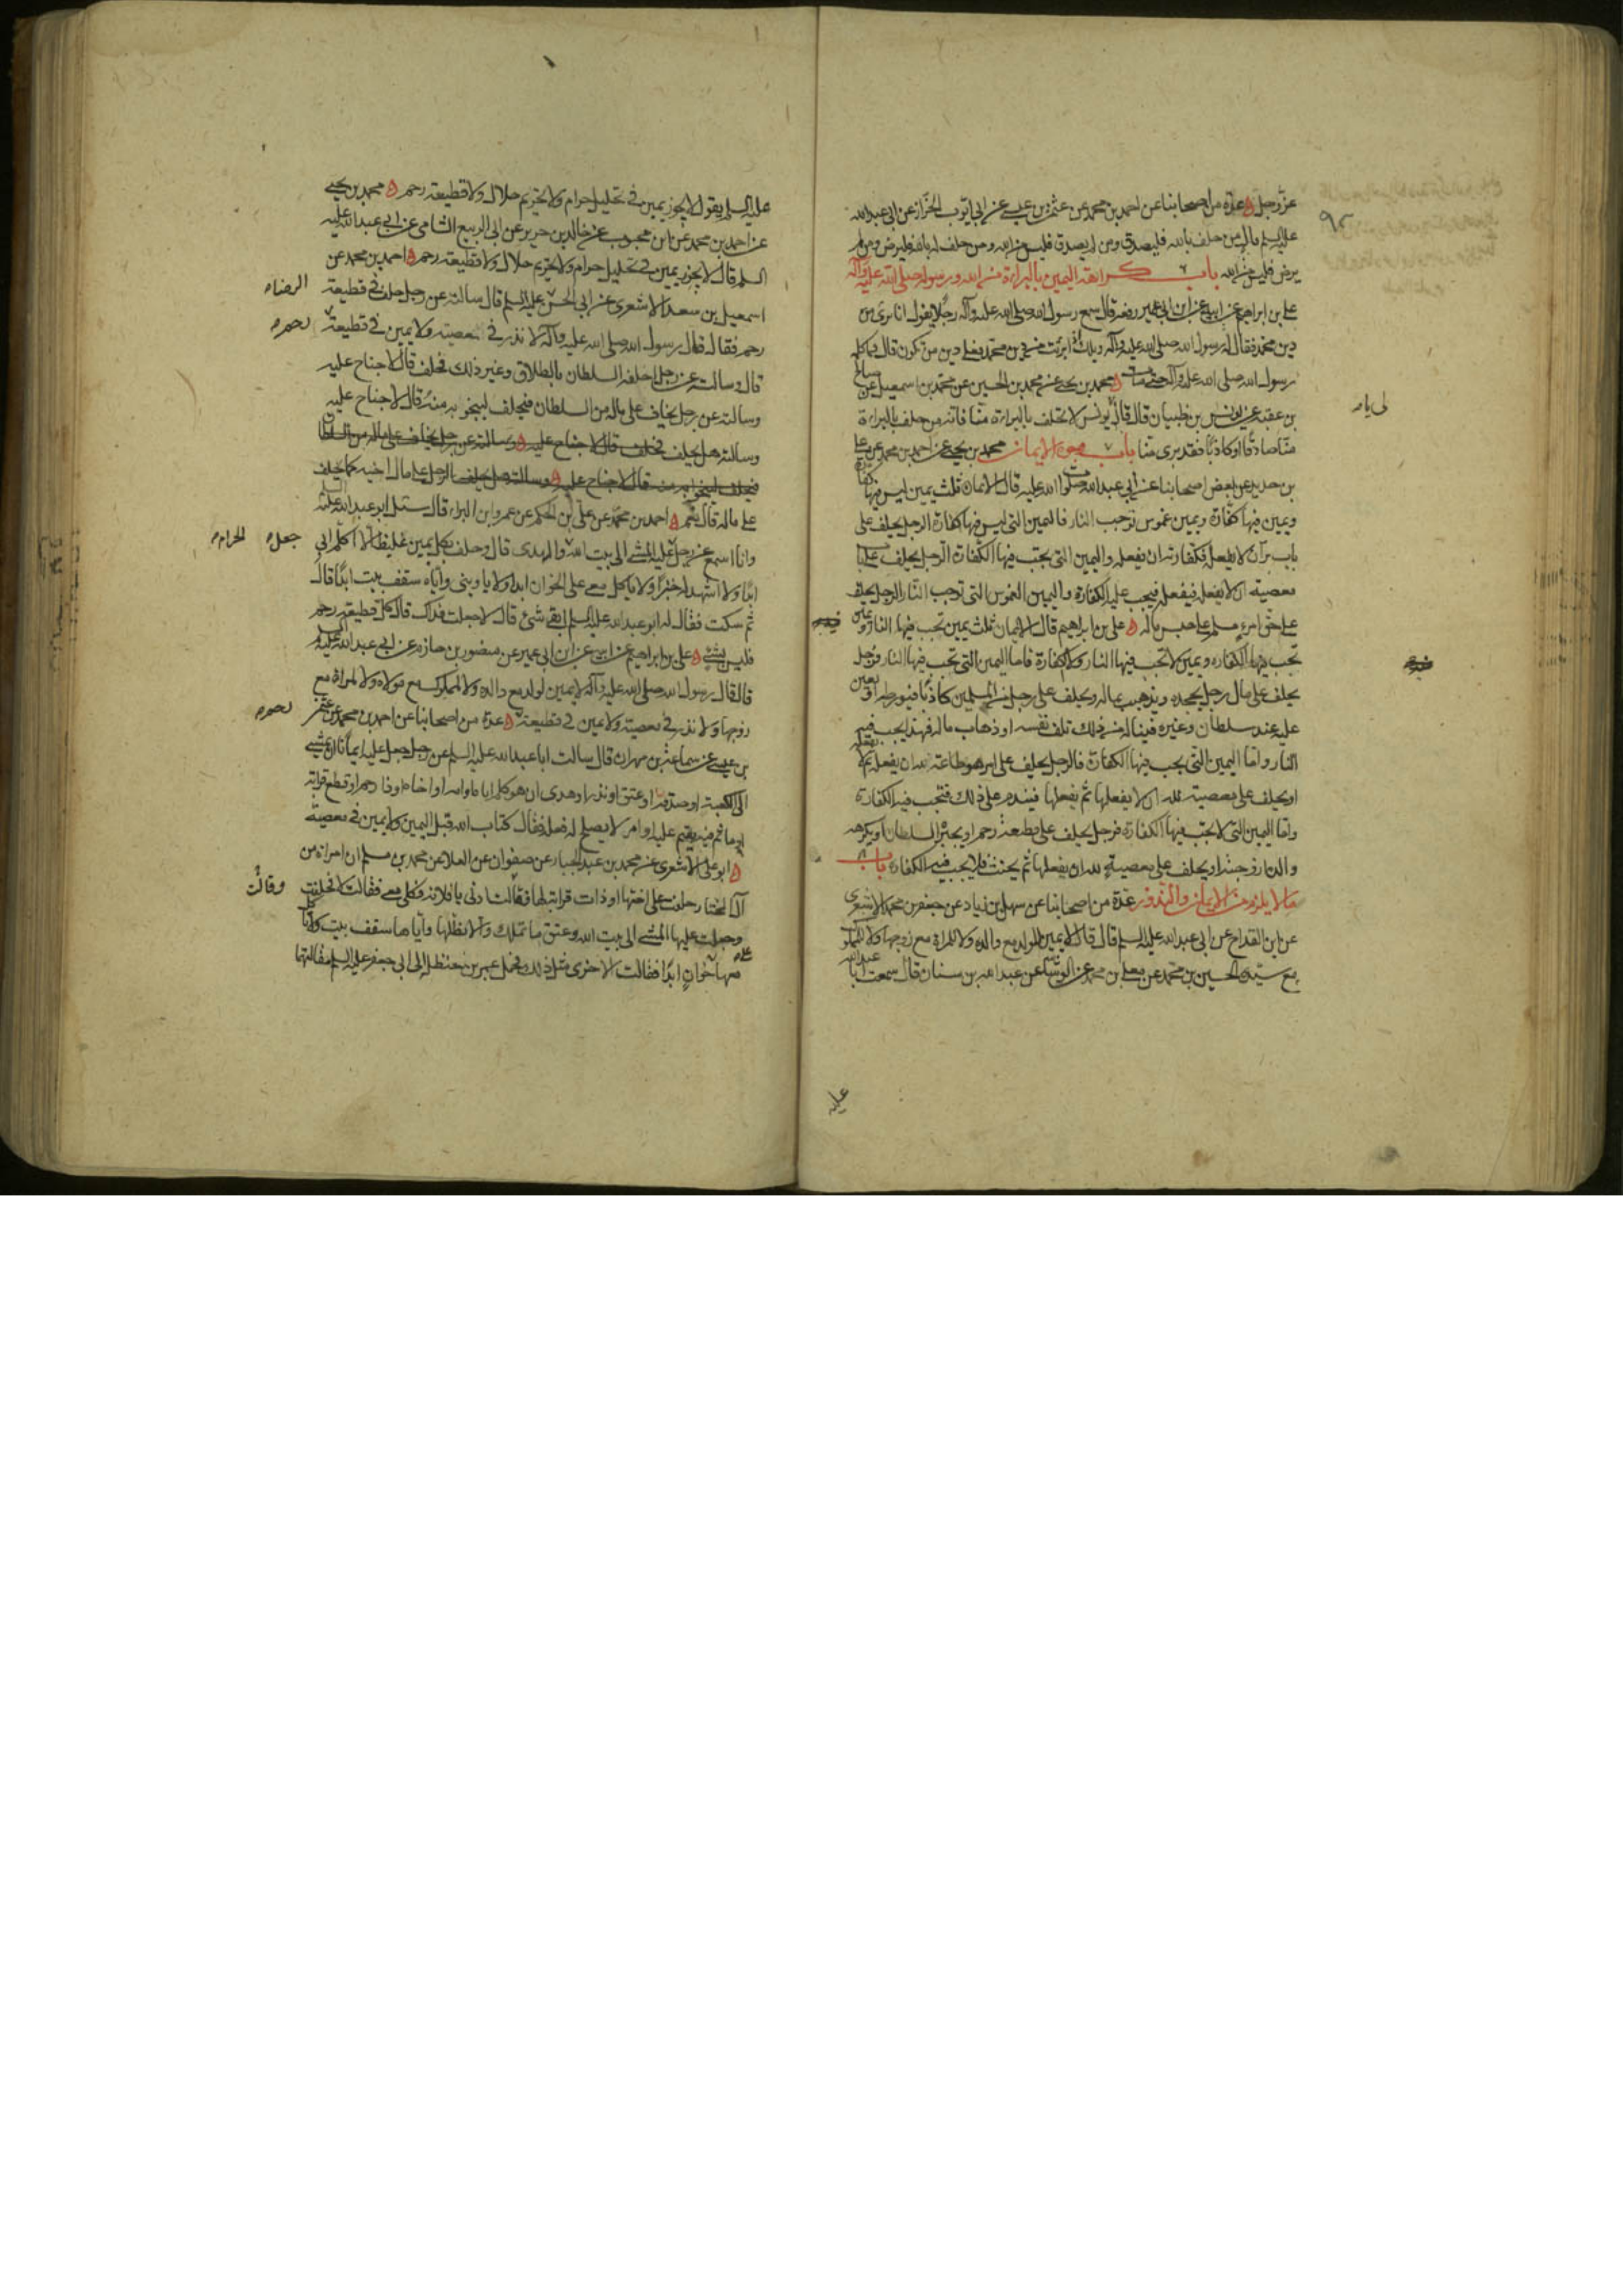 عز وجل ه عدة من اصحابنا عن احمد بن محمد عن عثمن بن عيسى عن ابي ايوب الخزاز عن ابي عبدالله
عليه السلم قال من حلف بالله فليصدق ومن لم يصدق فليس من الله ومن حلف له بالله فليرض ومن لم
يرض فليس من الله باب كراهة اليمين بالبراءة من الله ورسوله صلى الله عليه وآله
علي بن ابراهيم عن ابيه عن ابن ابي عمير رفعه قال سمع رسول الله صلى الله عليه وآله رجلا يقول انا بريء من
دين محمد فقال له رسول الله صلى الله عليه وآله ويلك اذا برئت من دين محمد فعلى دين من تكون قال فما كلمه
رسول الله صلى الله عليه وآله حتى مات ه محمد بن يحيى عن محمد بن الحسين عن محمد بن اسمعيل عن صالح
بن عقبة عن يونس بن ظبيان قال قال لي يا يونس لا تحلف بالبراءة منا فانه من حلف بالبراءة
منا صادقا او كاذبا فقد برئ منا باب وجوه الايمان محمد بن يحيى عن احمد بن محمد عن علي
بن حديد عن بعض اصحابنا عن ابي عبدالله صلوات الله عليه قال الايمان ثلث يمين ليس فيها كفارة
ويمين فيها كفارة ويمين غموس توجب النار فاليمين التي ليس فيها كفارة الرجل يحلف على
باب بر ان لا يفعله فكفارته ان يفعله واليمين التي يجب فيها الكفارة الرجل يحلف على باب
معصية ان لا يفعله فيفعله فيجب عليه الكفارة واليمين الغموس التي توجب النار الرجل يحلف
على حق امرئ مسلم على حبس ماله ه علي بن ابراهيم قال الايمان ثلث يمين تجب فيها النار ويمين
تجب فيها الكفارة ويمين لا تجب فيها النار ولا الكفارة فاما اليمين التي تجب فيها النار فرجل
يحلف على مال رجل يجحده ويذهب بماله ويحلف على رجل من المسلمين كاذبا فيورطه او يعين
عليه عند سلطان وغيره فيناله من ذلك تلف نفسه او ذهاب ماله فهذا يجب فيه
النار واما اليمين التي يجب فيها الكفارة فالرجل يحلف على امر هو طاعة لله ان يفعله ثم لا يفعله
او يحلف على معصية لله ان لا يفعلها ثم يفعلها فيندم على ذلك فتجب فيه الكفارة
واما اليمين التي لا تجب فيها الكفارة فرجل يحلف على قطيعة رحم او يجبره السلطان او يكرهه
والده او زوجته او يحلف على معصية لله ان يفعلها ثم يحنث فلا يجب فيه الكفارة باب
ما لا يلزم من الايمان والنذور عدة من اصحابنا عن سهل بن زياد عن جعفر بن محمد الاشعري
عن ابن القداح عن ابي عبدالله عليه السلم قال قال لا يمين للولد مع والده ولا للمراة مع زوجها ولا للمملوك
مع سيده الحسين بن محمد عن معلى بن محمد عن الوشاء عن عبدالله بن سنان قال سمعت ابا عبدالله
عليه
عليه السلم يقول لا يجوز يمين في تحليل حرام ولا تحريم حلال ولا قطيعة رحم ه محمد بن يحيى
عن احمد بن محمد عن ابن محبوب عن خالد بن جرير عن ابي الربيع الشامي عن ابي عبدالله عليه
السلم قال لا يجوز يمين في تحليل حرام ولا تحريم حلال ولا قطيعة رحم ه احمد بن محمد عن
اسمعيل بن سعد الاشعري عن ابي الحسن عليه السلم قال سالته عن رجل حلف في قطيعة
الرضا
رحم فقال قال رسول الله صلى الله عليه وآله لا نذر في معصية ولا يمين في قطيعة
رحم
قال وسالته عن رجل احلفه السلطان بالطلاق وغير ذلك فحلف قال لا جناح عليه
وسالته عن رجل يخاف على ماله من السلطان فيحلف لينجو به منه قال لا جناح عليه
وسالته هل يحلف فحلف قال لا جناح عليه ه وسالته عن رجل يخاف على ماله من السلطان
فيحلف لينجو به منه قال لا جناح عليه ه وسالته هل يحلف الرجل على مال اخيه كما يحلف
على ماله قال نعم ه احمد بن محمد عن علي بن الحكم عن عمرو ابن البراء قال سئل ابو عبدالله عليه السلم
وانا اسمع عن رجل عليه المشي الى بيت الله والهدي قال وحلف بكل يمين غليظ الا اكلم ابي
جعل
الحرام
ابدا ولا اشهد له خيرا ولا ياكل معي على الخوان ابدا ولا ياويني واياه سقف بيت ابدا قال
ثم سكت فقال له ابو عبدالله عليه السلم ابقي شئ قال لا جعلت فداك قال كل قطيعة رحم
فليس بشئ ه علي بن ابراهيم عن ابيه عن ابن ابي عمير عن منصور بن حازم عن ابي عبدالله عليه السلم
قال قال رسول الله صلى الله عليه وآله لا يمين لولد مع والده ولا لمملوك مع مولاه ولا لمراة مع
زوجها ولا نذر في معصية ولا يمين في قطيعة ه عدة من اصحابنا عن احمد بن محمد عن عثمن
رحم
بن عيسى عن سماعة بن مهران قال سالت ابا عبدالله عليه السلم عن رجل جعل عليه ايمانا ان يمشي
الى الكعبة او صدقة او عتق او نذر او هدي ان هو كلم اباه او امه او اخاه او ذا رحم او قطع قرابة
او ماثم فيه يقيم عليه او امر لا يصلح له فعله فقال كتاب الله قبل اليمين ولا يمين في معصية
ه ابو علي الاشعري عن محمد بن عبد الجبار عن صفوان عن العلا عن محمد بن مسلم ان امراة من
آل المختار حلفت على اختها او ذات قرابة لها فقالت ادني يا فلانة فكلي معي فقالت لا فحلفت
وقالت
وجعلت عليها المشي الى بيت الله وعتق ما تملك والا يظلها واياها سقف بيت ولا تاكل
معها على خوان ابدا فقالت الاخرى مثل ذلك فحمل عمر بن حنظلة الى ابي جعفر عليه السلم مقالتهما